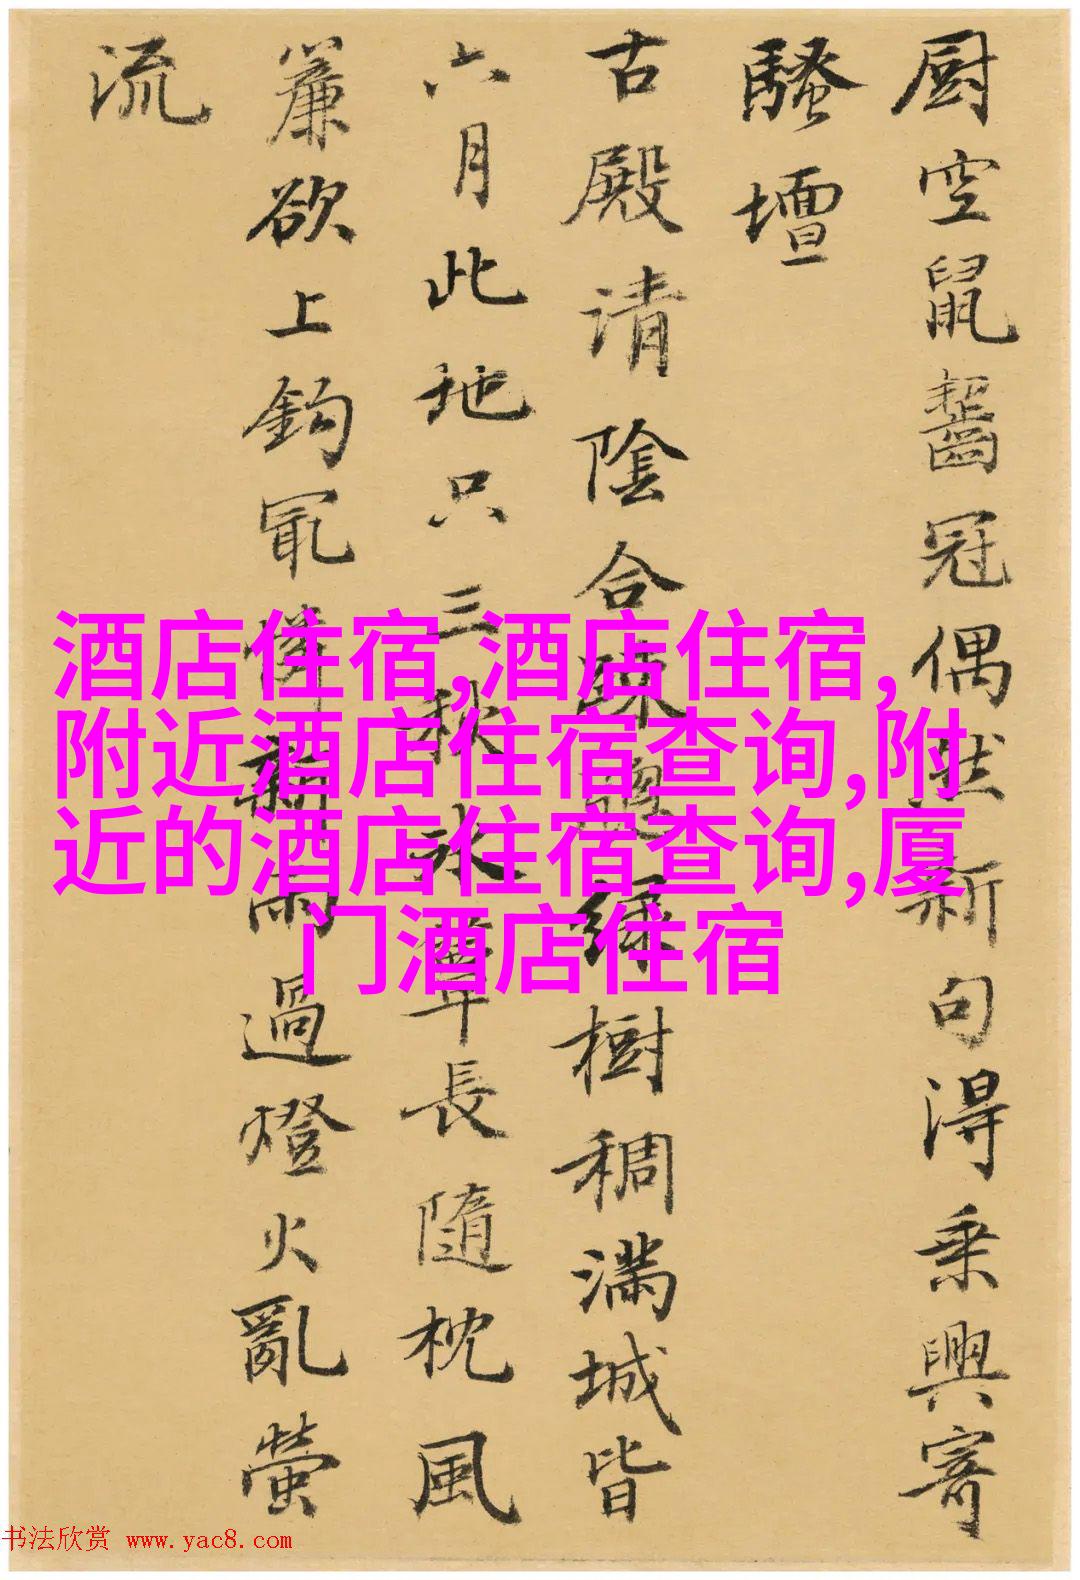 厨空鼠齧冠偶然新句得乘興寄
騷壇
古殿请陰合踈緑樹稠满城皆
六月此地只三秋氷簟長隨枕風
簾欲上鈎冣憐新雨過燈火亂螢
流
酒店住宿,酒店住宿,
附近酒店住宿查询,附
近的酒店住宿查询,厦
门酒店住宿
书法欣赏 www.yac8.com